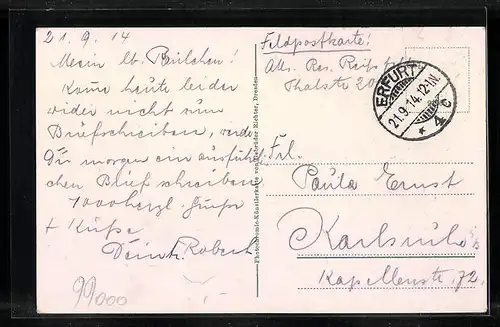 21.9.14
Meim lb. Beilchen!
Kome heute leider
wider nicht zum
Briefschreiben, werde
Dir morgen ein ausführli-
chen Brief schreiben
1000 herzl. Grüße
+ Küße
Dein Robert
99000
Photochromie-Künstlerkarte von Gebrüder Richter, Dresden
Feldpostkarte!
Abs. Res.
Thalstr 20
ERFURT
21.9.14.12-1N.
* 4 c
Frl.
Paula Ernst
Karlsruhe
Kapellenstr. 72.